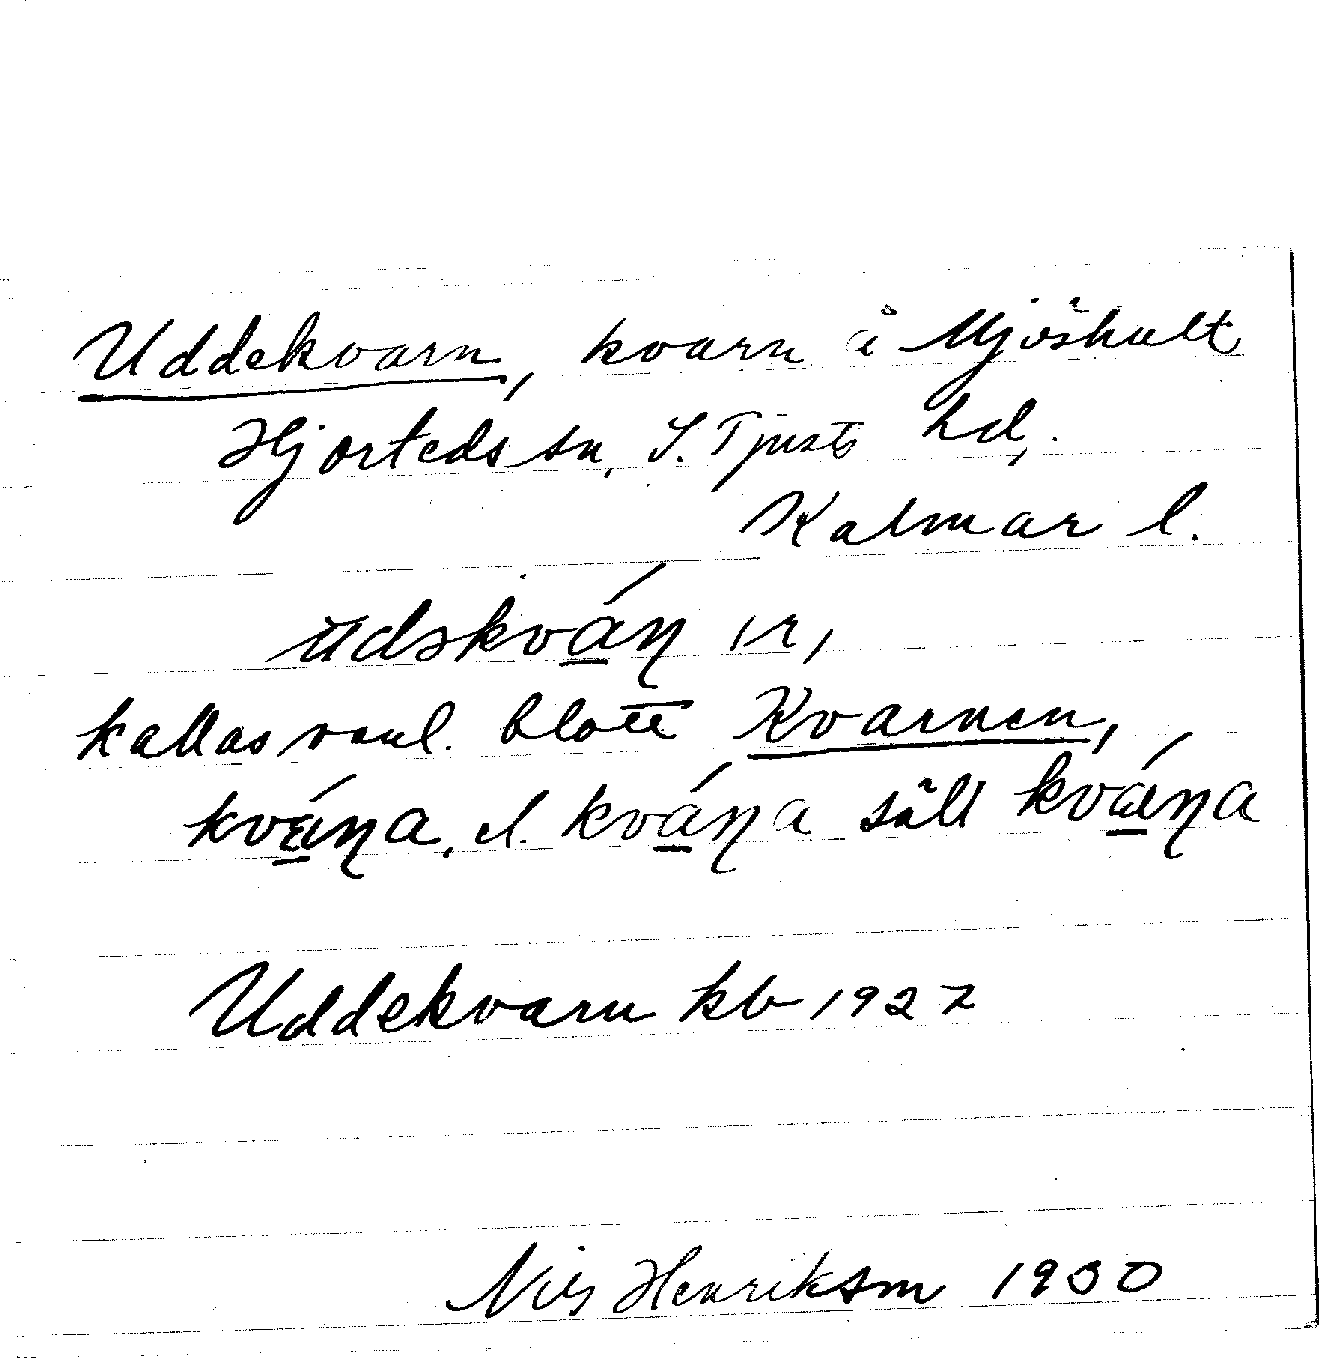 Uddekvarn, kvarn å Mjöshult
Hjorteds sn, S. Tjusts hd,
Kalmar l.
ŭdəkván ır,
kallas vanl. blott Kvarnen,
kvána, el. kvána säll kvána
Uddekvarn kb 1927
Nils Henrikson 1930